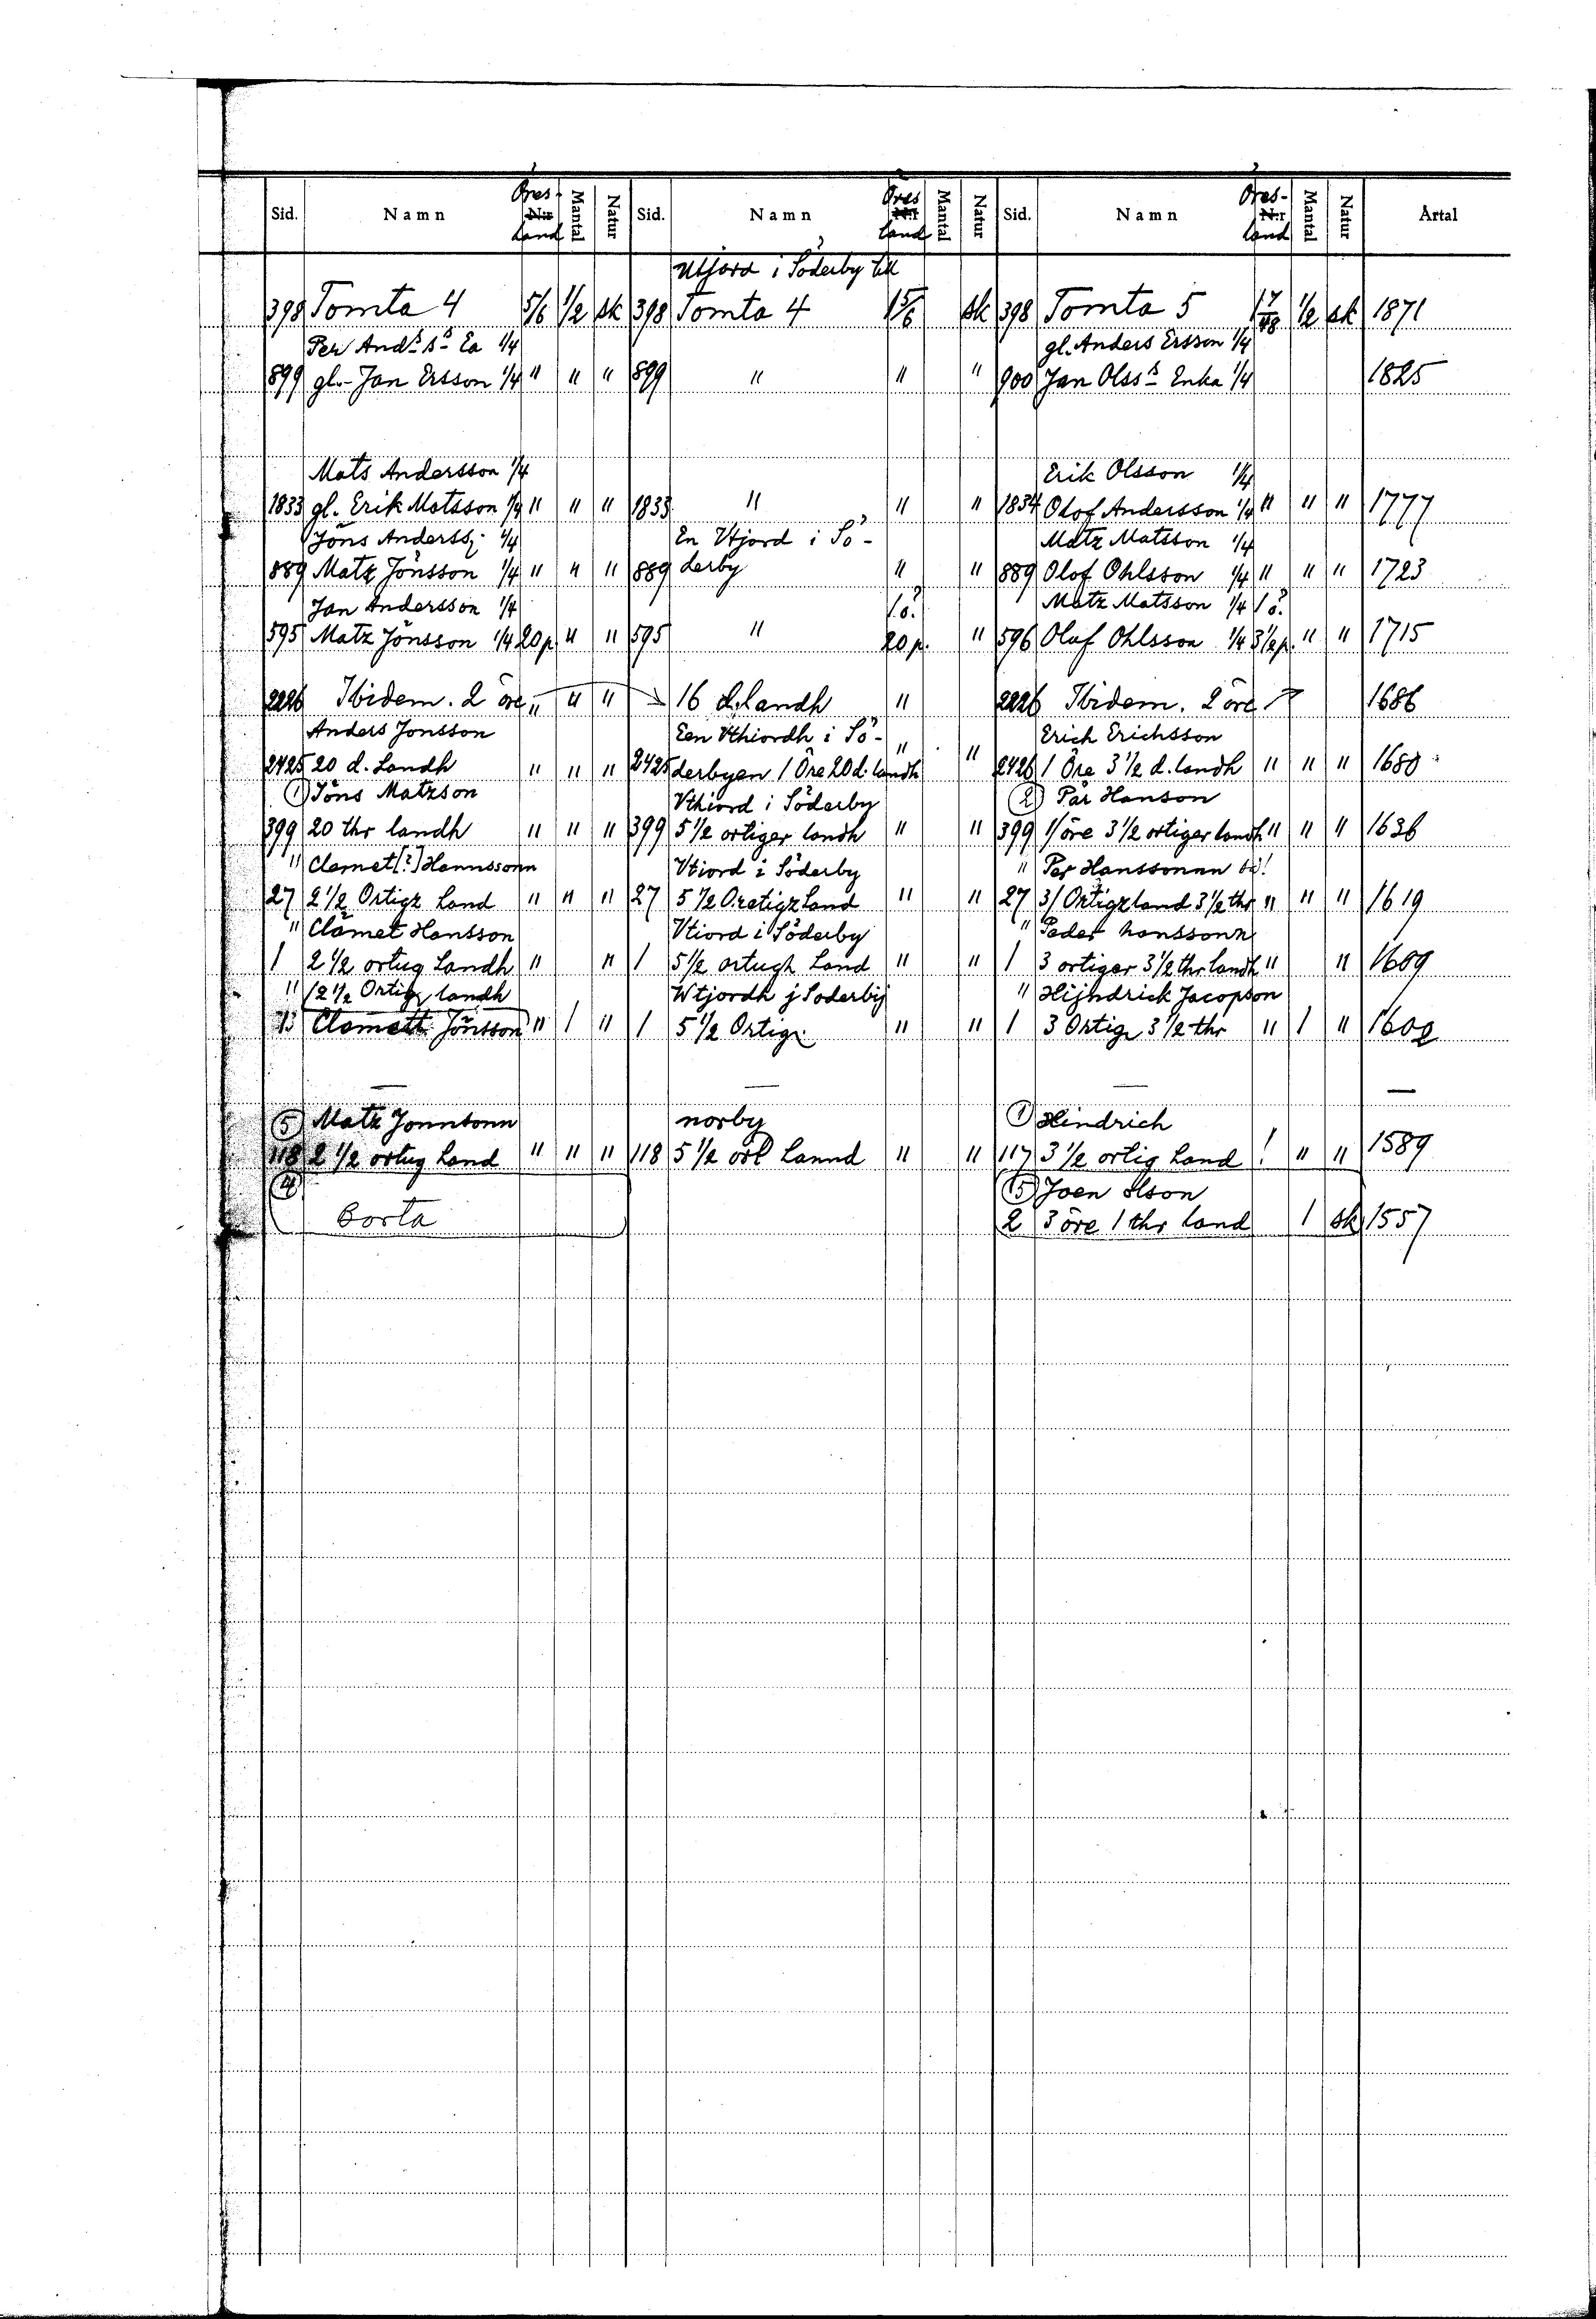 Sid. Namn Öres- Nr land Mantal Natur Sid. Namn Öres Nr land Mantal Natur Sid. Namn Öres- Nr land Mantal Natur Årtal
Utjord i Söderby till
398 Tomta 4 5/6 1/2 sk 398 Tomta 4 1 5/6 sk 398 Tomta 5 1 7/48 1/2 sk 1871
Per And:s s:s Ea 1/4 gl. Anders Ersson 1/4
899 gl. Jan Ersson 1/4 " " " 899 " " " 900 Jan Olss:s Enka 1/4 1825
Mats Andersson 1/4 Erik Olsson 1/4
1833 gl. Erik Matsson 1/4 " " " 1833 " " " 1834 Olof Andersson 1/4 " " " 1777
Jöns Anderss: 1/4 En Utjord i Sö- Matz Matsson 1/4
889 Matz Jönsson 1/4 " " " 889 derby " " 889 Olof Ohlsson 1/4 " " " 1723
Jan Andersson 1/4 1 ö. Matz Matsson 1/4 1 ö.
595 Matz Jönsson 1/4 20 p. " " 595 " 20 p. " 596 Oluf Ohlsson 1/4 3 1/2 p. " " 1715
2226 Ibidem. 2 öre " " " 16 d. landh " 2226 Ibidem. 2 öre 1686
Anders Jonsson Een Vthiordh i Sö- Erich Erichsson
2425 20 d. Landh " " " 2425 derbyen 1 Öre 20 d. landh " " 2426 1 Öre 3 1/2 d. landh " " " 1680
(1) Jöns Matzson Vthiord i Söderby (2) Pär Hanson
399 20 thr landh " " " 399 5 1/2 ortiger landh " " 399 1/ öre 3 1/2 ortiger landh " " " 1636
" Clemet [?] Hannssonn Vtiord i Söderby " Per Hanssonnn
27 2 1/2 Ortigz Land " " " 27 5 1/2 Oretigz Land " " 27 3/ Ortigzland 3 1/2 thr " " " 1619
" Clämet Hansson Vtiord i Söderby " Peder hanssonn
1 2 1/2 ortug Landh " " 1 5 1/2 ortugh Land " " 1 3 ortiger 3 1/2 thr landh " " 1609
" /2 1/2 Ortig landh Wtjordh j Soderbij " Hijndrick Jacopson
Clemett Jönsson " 1 " 1 5 1/2 Ortig " " 1 3 Ortig 3 1/2 thr " 1 " 1602
— — — —
(5) Matz Jonnsonn norby (1) Hindrich
118 2 1/2 ortug Land " " " 118 5 1/2 ört Lannd " " 117 3 1/2 ortig Land ! " " 1589
(4) (5) Joen olson
Borta 2 3 öre 1 thr land 1 sk 1557